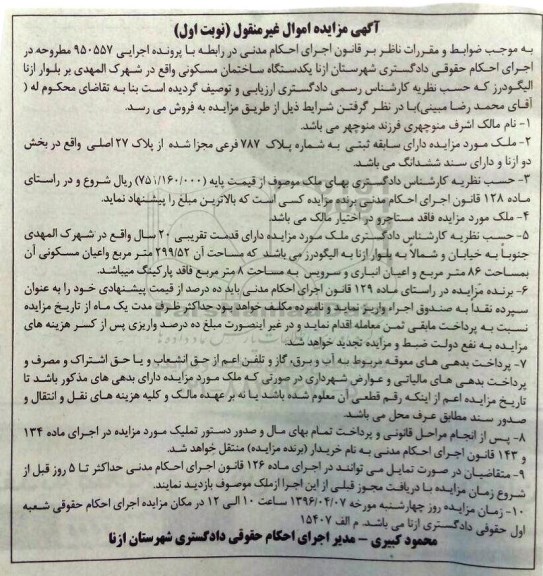 آگهی مزایده اموال غیرمنقول (نوبت اول)
به موجب ضوابط و مقررات ناظر بر قانون اجرای احکام مدنی در رابطه با پرونده اجرایی ۹۵۰۵۵۷ مطروحه در
اجرای احکام حقوقی دادگستری شهرستان ازنا یکدستگاه ساختمان مسکونی واقع در شهرک المهدی بر بلوار ازنا
الیگودرز که حسب نظریه کارشناس رسمی دادگستری ارزیابی و توصیف گردیده است بنا به تقاضای محکوم له (
آقای محمد رضا مبینی)با در نظر گرفتن شرایط ذیل از طریق مزایده به فروش می رسد.
۱- نام مالک اشرف منوچهری فرزند منوچهر می باشد.
۲- ملک مورد مزایده دارای سابقه ثبتی به شماره پلاک ۷۸۷ فرعی مجزا شده از پلاک ۲۷ اصلی واقع در بخش
دو ازنا و دارای سند ششدانگ می باشد.
۳- حسب نظریه کارشناس دادگستری بهای ملک موصوف از قیمت پایه (۷۵۱/۱۶۰/۰۰۰) ریال شروع و در راستای
ماده ۱۲۸ قانون اجرای احکام مدنی برنده مزایده کسی است که بالاترین مبلغ را پیشنهاد نماید.
۴- ملک مورد مزایده فاقد مستاجرو در اختیار مالک می باشد.
۵- حسب نظریه کارشناس دادگستری ملک مورد مزایده دارای قدمت تقریبی ۲۰ سال واقع در شهرک المهدی
جنوباً به خیابان و شمالاً به بلوار ازنا به الیگودرز می باشد که مساحت آن ۲۹۹/۵۲ متر مربع واعیان مسکونی آن
بمساحت ۸۶ متر مربع و اعیان انباری و سرویس به مساحت ۸ متر مربع فاقد پارکینگ میباشد.
۶- برنده مزایده در راستای ماده ۱۲۹ قانون اجرای احکام مدنی باید ده درصد از قیمت پیشنهادی خود را به عنوان
سپرده نقداً به صندوق اجراء واریز نماید و نامبرده مکلف خواهد بود حداکثر ظرف مدت یک ماه از تاریخ مزایده
نسبت به پرداخت مابقی ثمن معامله اقدام نماید و در غیر اینصورت مبلغ ده درصد واریزی پس از کسر هزینه های
مزایده به نفع دولت ضبط و مزایده تجدید خواهد شد.
۷- پرداخت بدهی های معوقه مربوط به آب و برق، گاز و تلفن اعم از حق انشعاب و یا حق اشتراک و مصرف و
پرداخت بدهی های مالیاتی و عوارض شهرداری در صورتی که ملک مورد مزایده دارای بدهی های مذکور باشد تا
تاریخ مزایده اعم از اینکه رقم قطعی آن معلوم شده باشد یا نه بر عهده مالک و کلیه هزینه های نقل و انتقال و
صدور سند مطابق عرف محل می باشد.
۸- پس از انجام مراحل قانونی و پرداخت تمام بهای مال و صدور دستور تملیک مورد مزایده در اجرای ماده ۱۳۴
و ۱۴۳ قانون اجرای احکام مدنی به نام خریدار (برنده مزایده) منتقل خواهد شد.
۹- متقاضیان در صورت تمایل می توانند در اجرای ماده ۱۲۶ قانون اجرای احکام مدنی حداکثر تا ۵ روز قبل از
شروع زمان مزایده با دریافت مجوز قبلی از این اجرا ازملک موصوف بازدید نمایند.
۱۰- زمان مزایده روز چهارشنبه مورخه ۱۳۹۶/۰۴/۰۷ ساعت ۱۰ الی ۱۲ در مکان مزایده اجرای احکام حقوقی شعبه
اول حقوقی دادگستری ازنا می باشد. م الف ۱۵۴۰۷
محمود کبیری - مدیر اجرای احکام حقوقی دادگستری شهرستان ازنا